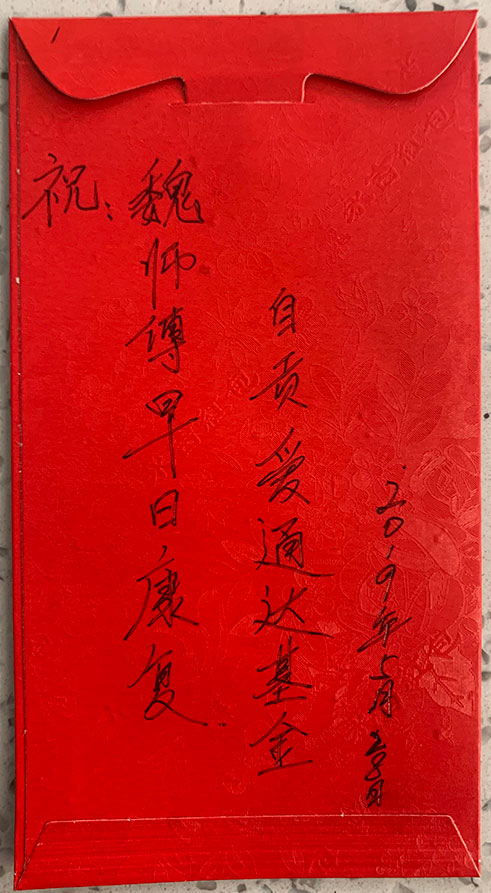 祝：
魏师傅早日康复
自贡爱通达基金
2019年5月30日